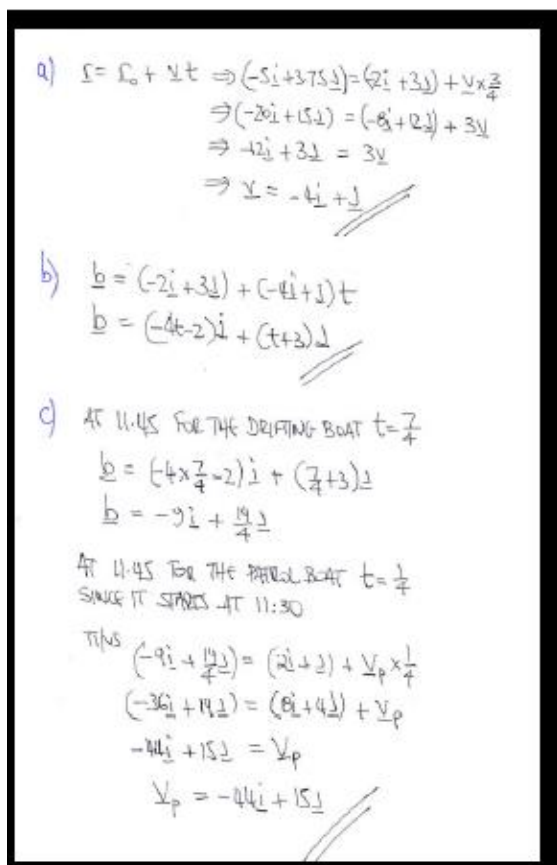 a) r = r₀ + v t ⇒ (-5i + 3.75j) = (-2i + 3j) + v × 3/4
⇒ (-20i + 15j) = (-8i + 12j) + 3v
⇒ -12i + 3j = 3v
⇒ v = -4i + j
b) b = (-2i + 3j) + (-4i + j)t
b = (-4t-2)i + (t+3)j
c) AT 11.45 FOR THE DRIFTING BOAT t = 7/4
b = (-4×7/4-2)i + (7/4+3)j
b = -9i + 19/4 j
AT 11.45 FOR THE PATROL BOAT t = 1/4
SINCE IT STARTS AT 11:30
THUS
(-9i + 19/4 j) = (2i + j) + Vp × 1/4
(-36i + 19j) = (8i + 4j) + Vp
-44i + 15j = Vp
Vp = -44i + 15j